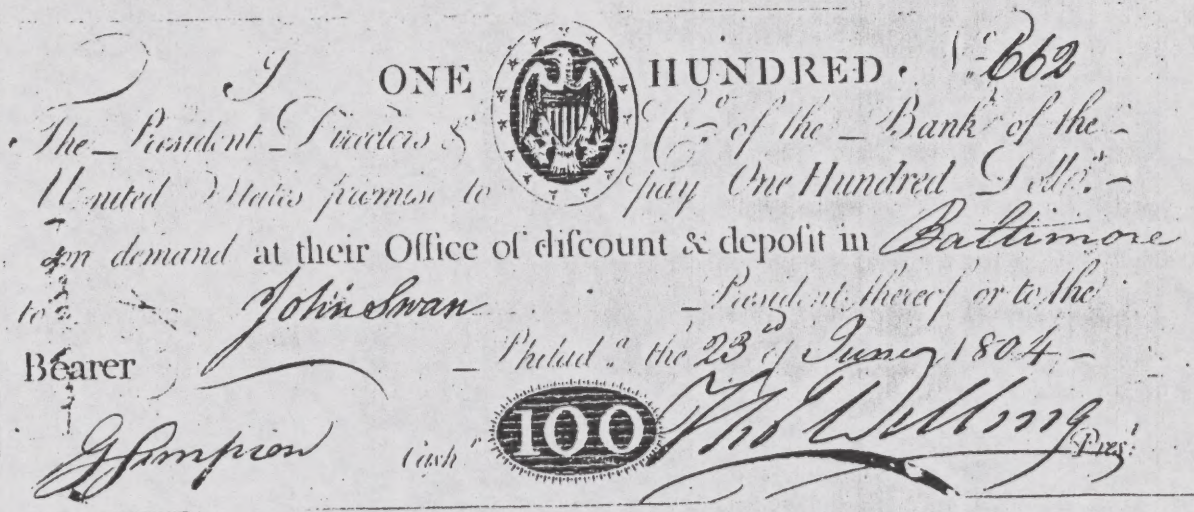 I ONE HUNDRED. No. 662
The President Directors & Co. of the Bank of the
United States promise to pay One Hundred Dollrs.
on demand at their Office of diſcount & depoſit in Baltimore
to John Swan President thereof or to the
Bearer Philada. the 23rd of June 1804
G Simpson Cashr. 100 Tho Willing Prest.